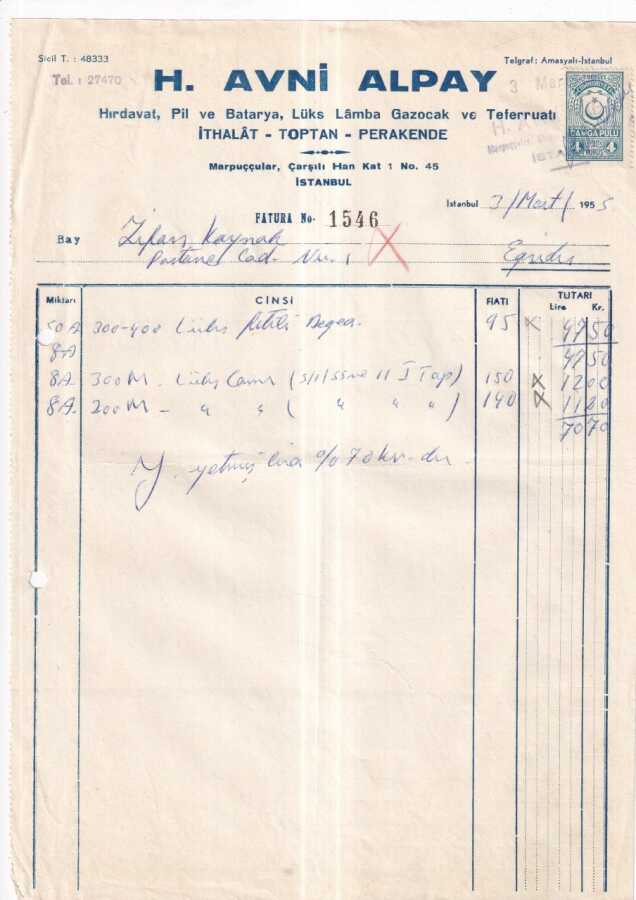 Sicil T. : 48333
Telgraf: Amasyalı-İstanbul
Tel. : 27470
H. AVNİ ALPAY
3 Mar
Hırdavat, Pil ve Batarya, Lüks Lâmba Gazocak ve Teferruatı
İTHALÂT - TOPTAN - PERAKENDE
DAMGA PULU
4 4
Marpuççular, Çarşılı Han Kat 1 No. 45
İSTANBUL
İstanbul 3/Mart/1955
FATURA No. 1546
Bay Kaynak
Postane Cad. No. 1
Miktarı CİNSİ FİATI TUTARI
Lira Kr.
50 A 300-400 Lüks 95 47 50
8A 47 50
8A. 300 M. Lüks Camı 150 12 00
8A. 200 M - " " ( " " " ) 140 11 20
70 70
Y. yetmiş lira % 70 kr-dır.